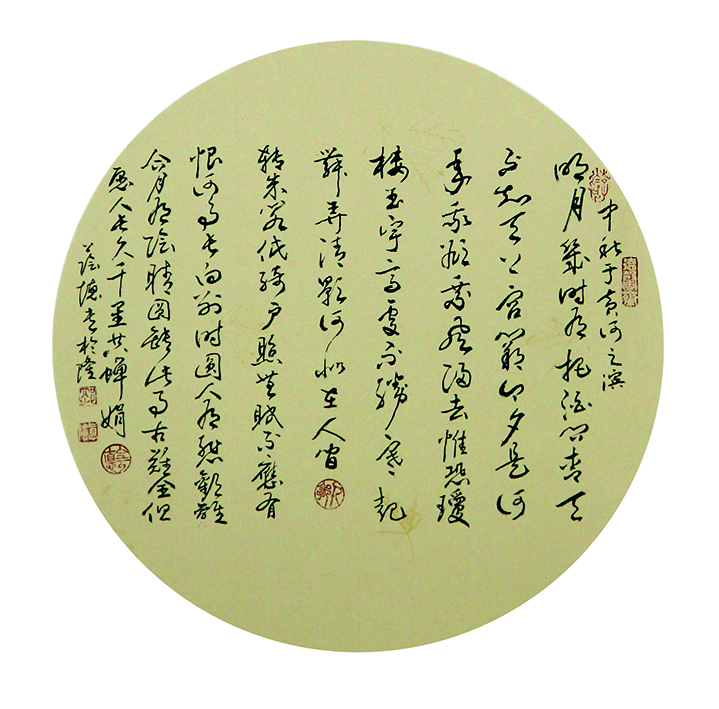 中秋于黄河之滨
明月幾时有把酒问青天
不知天上宫阙今夕是何
年我欲乘风归去惟恐瓊
楼玉宇高处不胜寒起
舞弄清影何似在人间
转朱阁低绮户照无眠不應有
恨何事长向别时圆人有悲歡離
合月有陰晴圆缺此事古難全但
愿人长久千里共蝉娟
书於隆